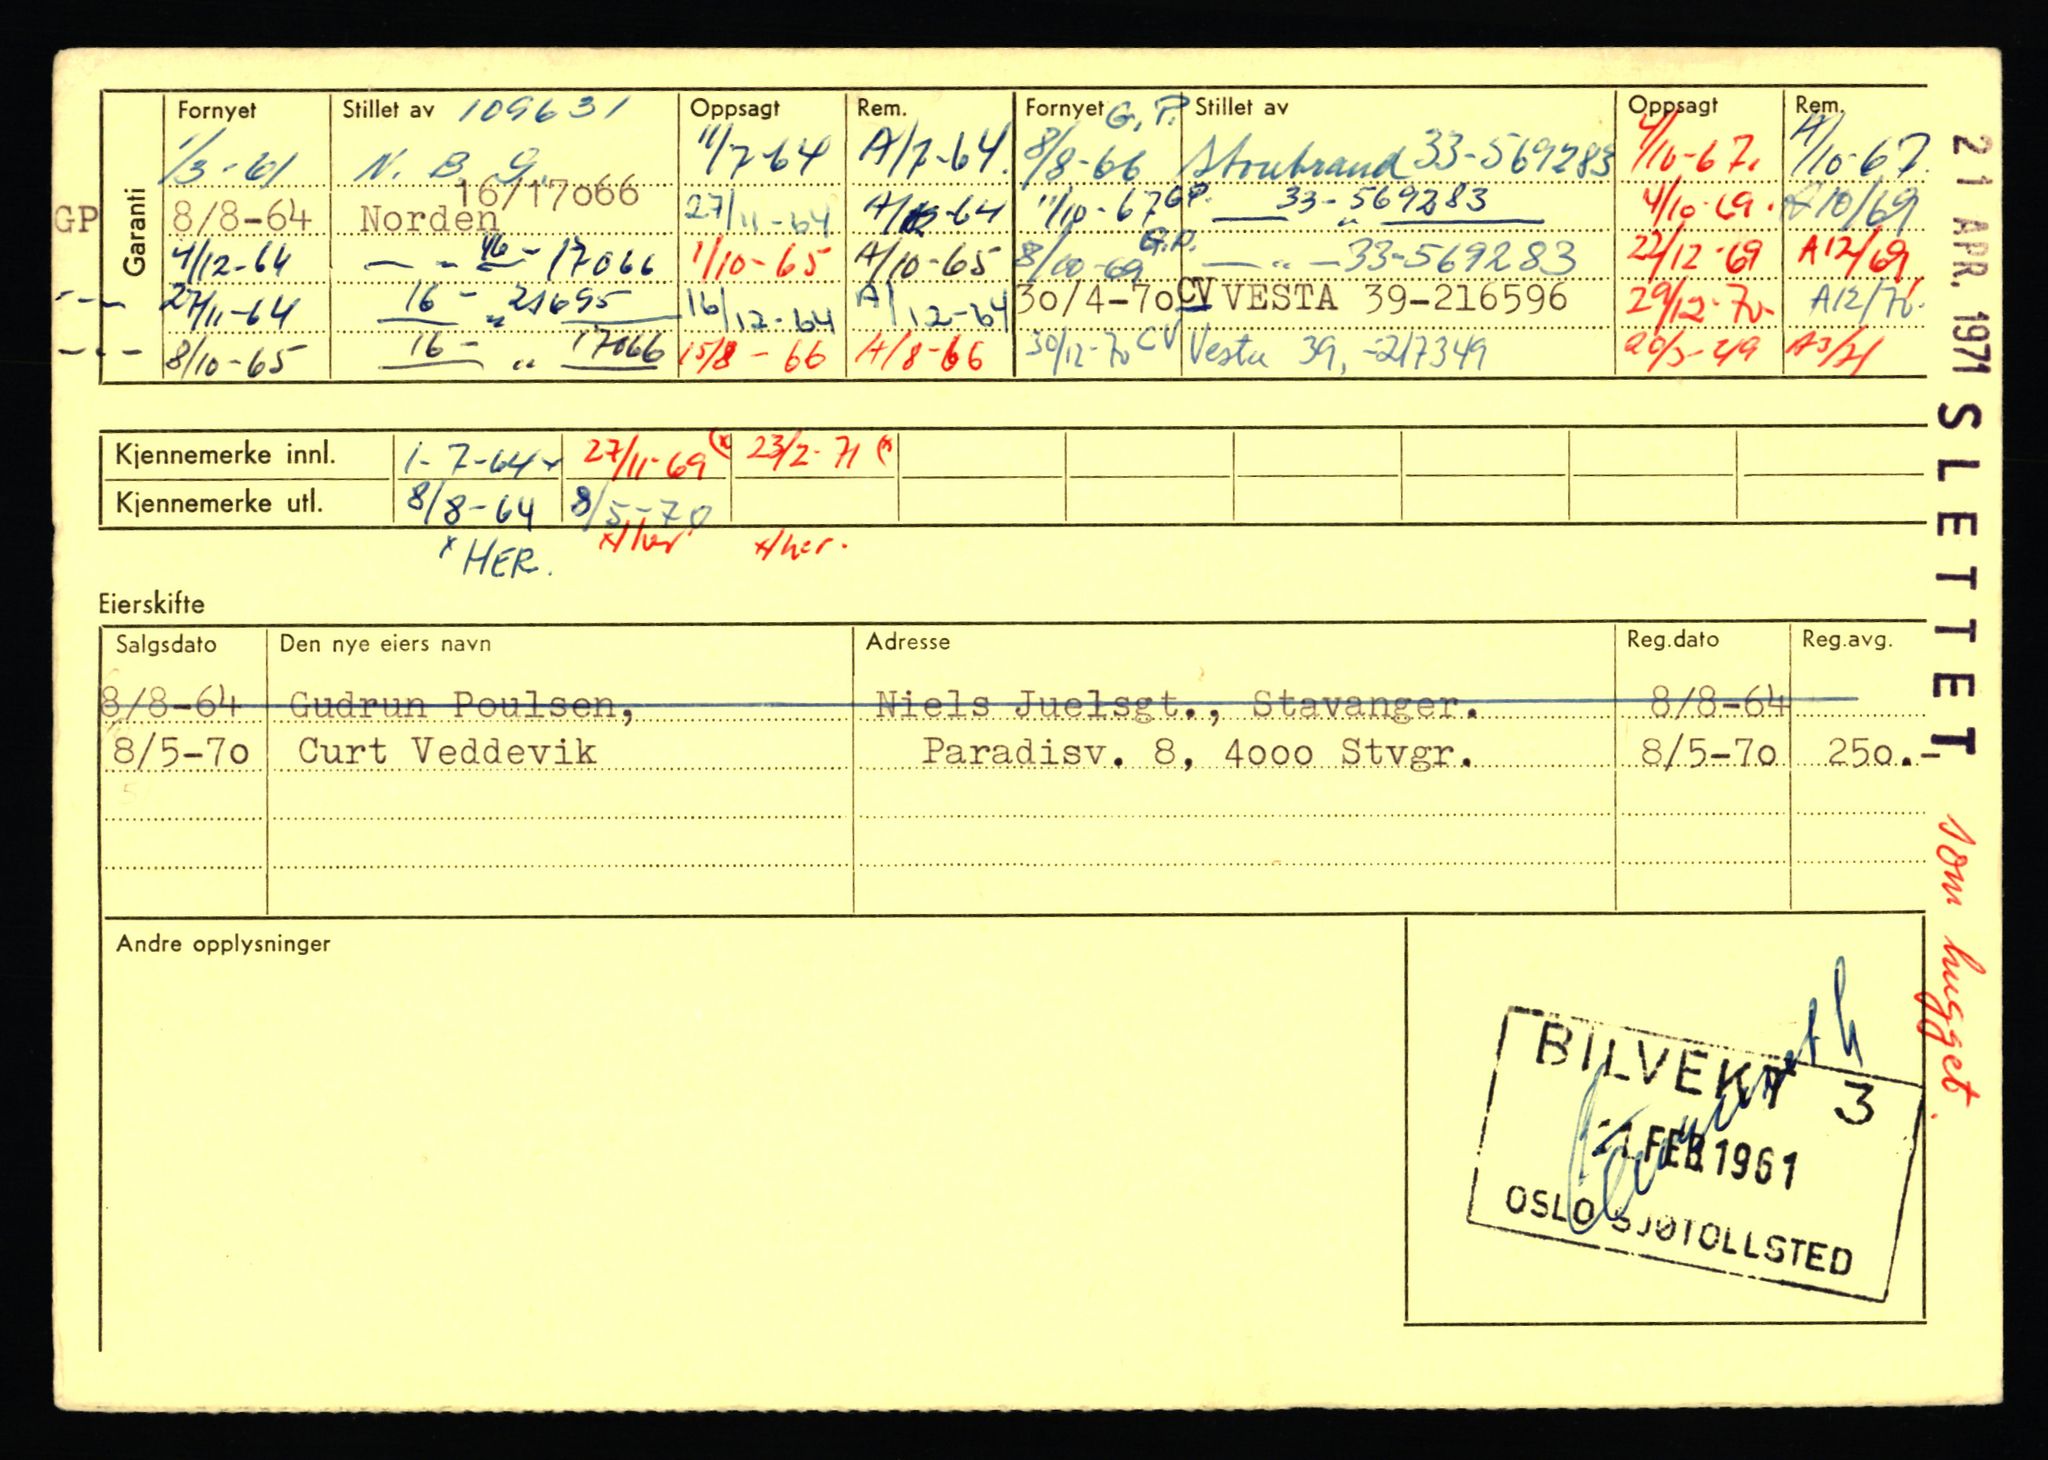 Garanti
Fornyet Stillet av 109631 Oppsagt Rem. Fornyet G.P. Stillet av Oppsagt Rem.
1/3-61 N. B. G. 11/7-64 A/7-64. 8/8-66 Storebrand 33-569283 4/10-67. A/10-67.
GP 8/8-64 Norden 16/17066 27/11-64 A/12-64 11/10-67 GP. — 33-569283 4/10-69. A 10/69
4/12-64 — " — 16-17066 1/10-65 A/10-65 8/10-69 G.P. — " — 33-569283 22/12-69 A12/69
— " — 27/11-64 16 - 21695 16/12-64 A/12-64 30/4-70 CV VESTA 39-216596 29/12-70 A12/70.
— " — 8/10-65 16 - " 17066 15/8-66 A/8-66 30/12-70 CV Vesta 39,-217349 A3/71
Kjennemerke innl. 1-7-64 x 27/11-69 (x 23/2-71 (x
Kjennemerke utl. 8/8-64 8/5-70
x HER. x/her x/her.
Eierskifte
Salgsdato Den nye eiers navn Adresse Reg.dato Reg.avg.
8/8-64 Gudrun Poulsen, Niels Juelsgt., Stavanger. 8/8-64
8/5-70 Curt Veddevik Paradisv. 8, 4000 Stvgr. 8/5-70 250.-
Andre opplysninger
BILVEKT 3
FEB 1961
OSLO SJØTOLLSTED
21 APR. 1971 SLETTET som hugget.